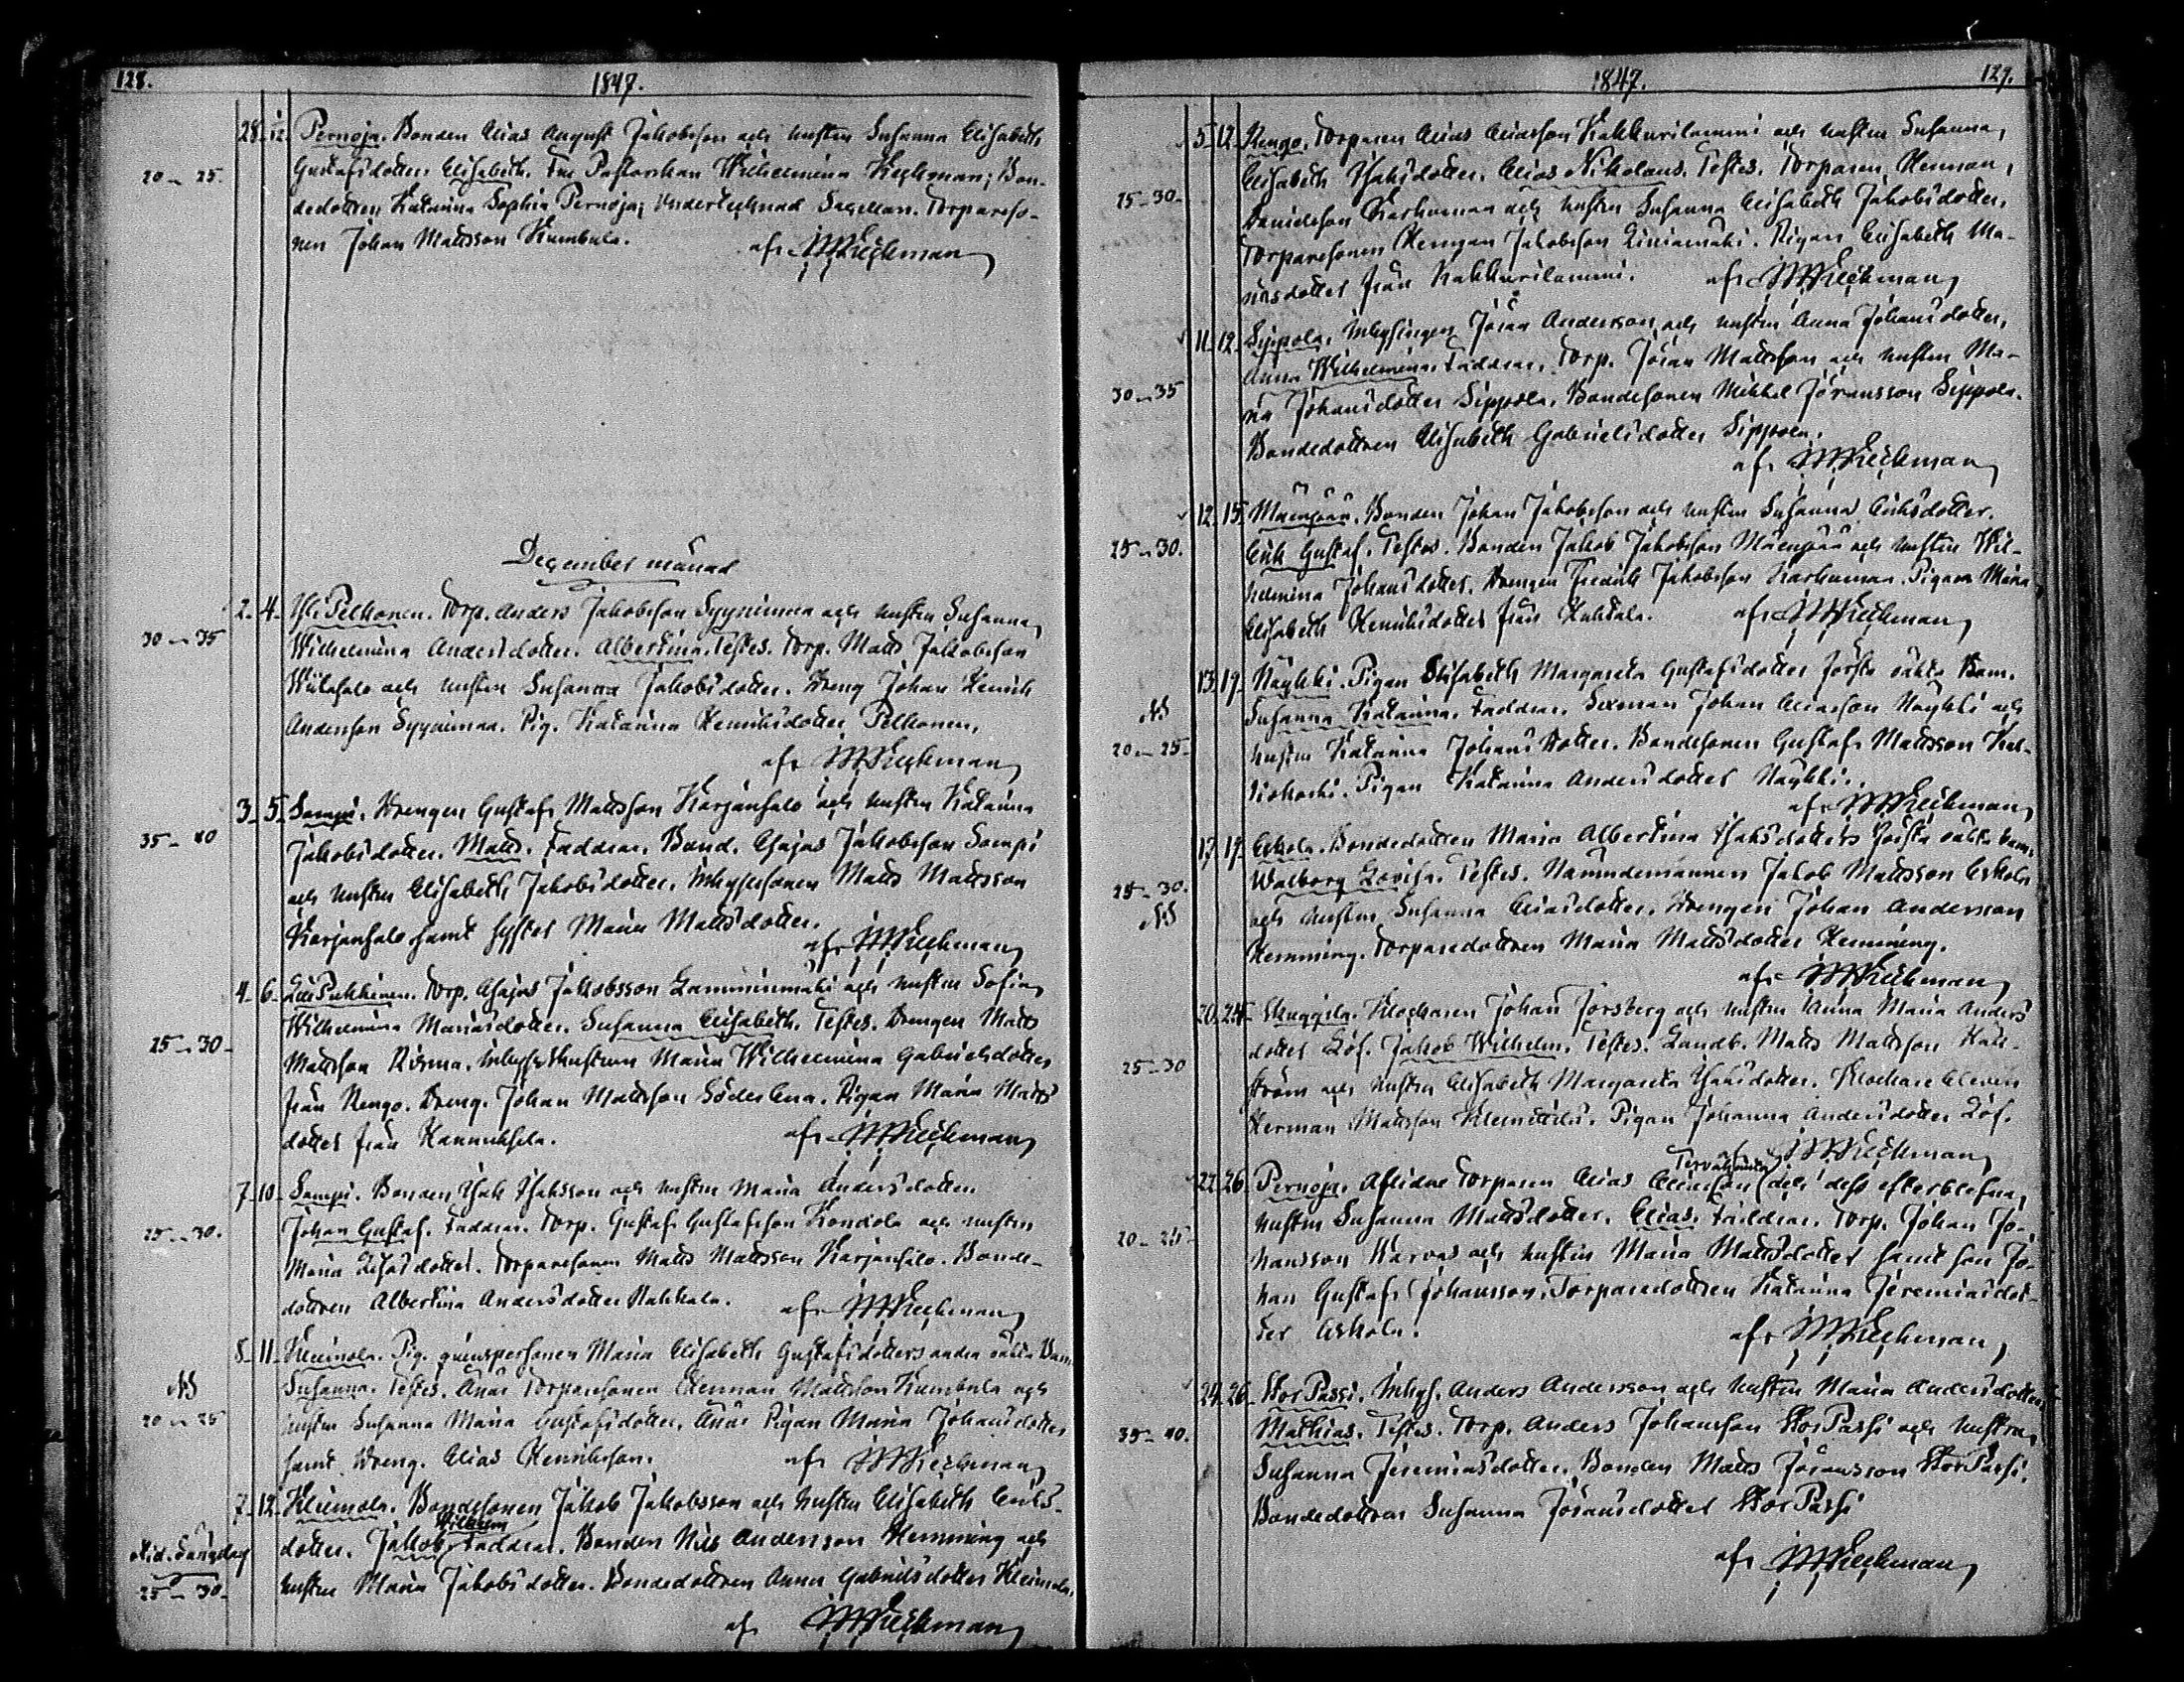 128.
1847.
28. 12. Pernoja. Bonden Elias August Jakobsson och hustru Susanna Elisabeth
20 – 25. Gustafsdotter. Elisabeth. Fru Pastorskan Wilhelmina Kjeckman; Bon-
dedottren Katarina Sophia Pernoja; Undertecknad Sacellan. Torpareso-
nen Johan Mattsson Kumbula. af
December månad
2. 4. Pelkonen. Torp. Anders Jakobsson Syynimaa och hustru Susanna
30 – 35 Wilhelmina Andersdotter. Albertina. Testes. Torp. Matts Jakobsson
och hustru Susanna Jakobsdotter. Dreng Johan Henrik
Andersson Syynimaa. Pig. Katarina Henriksdotter Pelkonen.
af
3. 5. Sampi. Drengen Gustaf Mattsson Karjansalo och hustru Katarina
35 – 40 Jakobsdotter. Matts. Faddrar. Bond. Esajas Jakobsson Sampi
och hustru Elisabeth Jakobsdotter. Inhysesonen Matts Mattsson
Karjansalo samt syster Maria Mattsdotter.
af
4. 6. Torp. Esajas Jakobsson Lamminmäki och hustru Sofia
Wilhelmina Mariasdotter. Susanna Elisabeth. Testes. Drengen Matts
25 – 30 – Mattsson Inhyseshustrun Maria Wilhelmina Gabrielsdotter
från Rengo. Dreng. Johan Mattsson Söderlena. Pigan Maria Matts
dotter från Hannuksela. af
7. 10. Sampi. Bonden Isak Isaksson och hustru Maria Andersdotter.
25 – 30. Johan Gustaf. Faddrar. Torp. Gustaf Gustafsson Kondola och hustru
Maria dotter. Torparesonen Matts Mattsson Karjansalo. Bonde-
dottren Albertina Andersdotter Rahkala. af
8. 11. Kleimola. Pig. qvinspersonen Maria Elisabeth Gustafsdotters andra oäkta Barn
Susanna. Testes. Torparesonen Herman Mattsson Kumbula och
20 – 25 hustru Susanna Maria Gustafsdotter. Pigan Maria Johansdotter
samt Dreng. Elias Henriksson. af
7. 12. Kleimola. Bondesonen Jakob Jakobsson och hustru Elisabeth Eriks-
Wilhelm
dotter. Jakob Faddrar. Bonden Nils Andersson Hemming och
25 – 30. hustru Maria Jakobsdotter. Bondedottren Anna Gabrielsdotter Kleimola.
af
1847.
129.
5. 12. Rengo. Torparen Elias Eliasson Kakkurilammi och hustru Susanna
Elisabeth Isaksdotter. Elias Nikolaus. Testes. Torparen Herman
25 – 30 – Danielsson Karhumaa och hustru Susanna Elisabeth Jakobsdotter.
Torparesonen Herman Jakobsson Liniamäki. Pigan Elisabeth Ma-
riasdotter från Kakkurilammi. af
11. 12. Sippola. Inhysingen Jöran Andersson och hustru Anna Johansdotter,
Anna Wilhelmina. Faddrar. Torp. Jöran Mattsson och hustru Ma-
30 – 35 ria Johansdotter Sippola. Bondesonen Mikkel Jöransson Sippola.
Bondedottren Elisabeth Gabrielsdotter Sippola.
af
12. 15. Mäenpää. Bonden Johan Jakobsson och hustru Susanna Eriksdotter.
25 – 30. Erik Gustaf. Testes. Bonden Jakob Jakobsson Mäenpää och hustru Wil-
helmina Johansdotter. Drengen Fredrik Jakobsson Karhumaa. Pigan Maria
Elisabeth Henriksdotter från af
13. 19. Näykki. Pigan Elisabeth Margareta Gustafsdotter första oäkta Barn.
Susanna Katarina. Faddrar. Sexman Johan Eliasson Näykki och
20 – 25 – hustru Katarina Johansdotter. Bondesonen Gustaf Mattsson
Pigan Katarina Andersdotter Näykki.
af
17. 19. Eskola. Bondedottren Maria Albertina Isaksdotters första oäkta barn,
25 – 30. Walborg Lovisa. Testes. Nämndemannen Jakob Mattsson Eskola
och hustru Susanna Eliasdotter. Drengen Johan Andersson
Hemming. Torparedottren Maria Mattsdotter Hemming.
af
20. 24. Klockaren Johan Forsberg och hustru Anna Maria Anders
dotter Löf. Jakob Wilhelm. Testes. Landb. Matts Mattsson Häll-
25 – 30 ström och hustru Elisabeth Margareta Isaksdotter. Klockare Eleven
Herman Mattsson Klemettilä. Pigan Johanna Andersdotter Löf.
af
22. 26. Pernoja. Aflidne Torparen Elias Eliasson och dess efterblefna
hustru Susanna Mattsdotter. Elias. Faddrar. Torp. Johan Jo-
20 – 25 – hansson Warvas och hustru Maria Mattsdotter samt son Jo-
han Gustaf Johansson. Torparedottren Katarina Jeremiasdot-
ter Eskola. af
24. 26. StorPassi. Inhys. Anders Andersson och hustru Maria Andersdotter
35 – 40. Mathias. Testes. Torp. Anders Johansson StorPassi och hustru
Susanna Jeremiasdotter. Bonden Matts Jöransson StorPassi.
Bondedottren Susanna Jöransdotter StorPassi
af